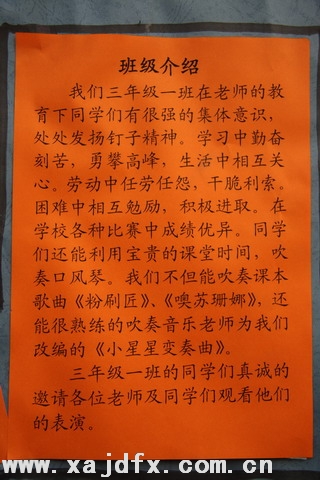 班级介绍
我们三年级一班在老师的教
育下同学们有很强的集体意识，
处处发扬钉子精神。学习中勤奋
刻苦，勇攀高峰，生活中相互关
心。劳动中任劳任怨，干脆利索。
困难中相互勉励，积极进取。在
学校各种比赛中成绩优异。同学
们还能利用宝贵的课堂时间，吹
奏口风琴。我们不但能吹奏课本
歌曲《粉刷匠》、《噢苏珊娜》，还
能很熟练的吹奏音乐老师为我们
改编的《小星星变奏曲》。
三年级一班的同学们真诚的
邀请各位老师及同学们观看他们
的表演。
www.xajdfx.com.cn